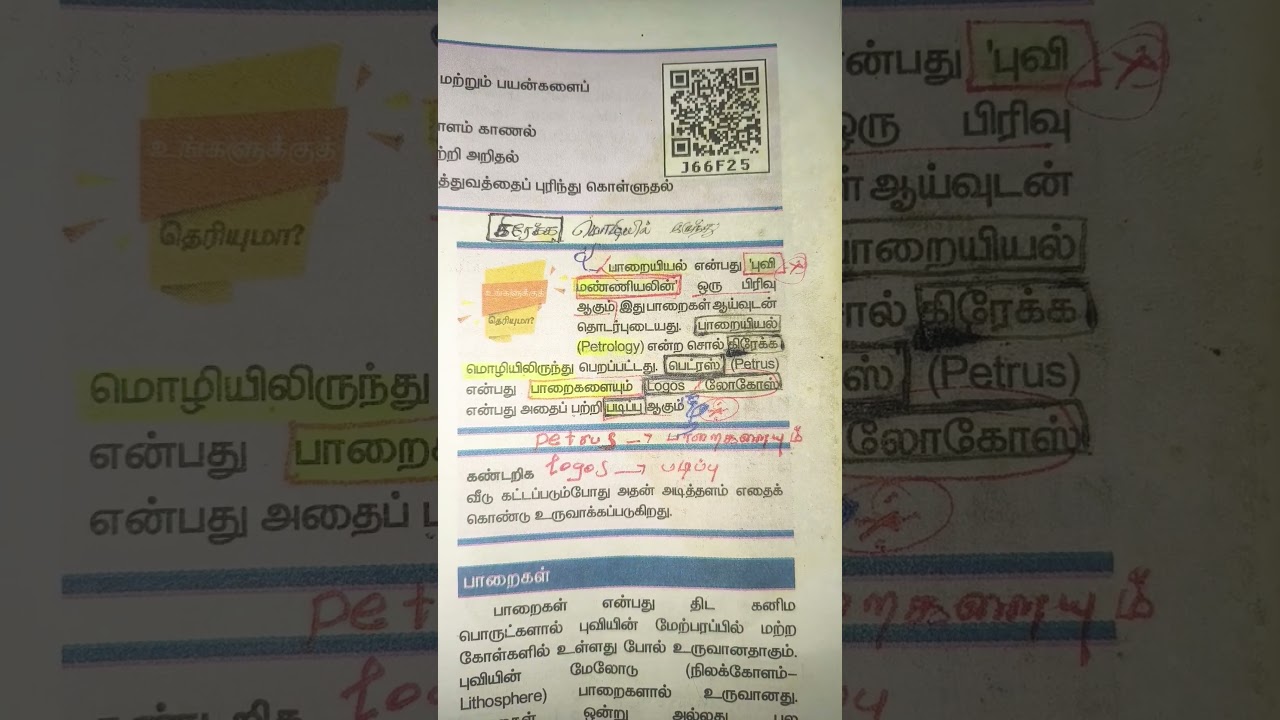 மற்றும் பயன்களைப்
ாளம் காணல்
ற்றி அறிதல்
த்துவத்தைப் புரிந்து கொள்ளுதல்
J66F25
உங்களுக்குத்
தெரியுமா?
பாறையியல் என்பது 'புவி
மண்ணியலின்' ஒரு பிரிவு
ஆகும் இது பாறைகள் ஆய்வுடன்
தொடர்புடையது. பாறையியல்
(Petrology) என்ற சொல் கிரேக்க
மொழியிலிருந்து பெறப்பட்டது. பெட்ரஸ் (Petrus)
என்பது பாறைகளையும் Logos லோகோஸ்
என்பது அதைப் பற்றி படிப்பு ஆகும்
petrus → பாறைகளையும்
கண்டறிக logos → படிப்பு
வீடு கட்டப்படும்போது அதன் அடித்தளம் எதைக்
கொண்டு உருவாக்கப்படுகிறது.
பாறைகள்
பாறைகள் என்பது திட கனிம
பொருட்களால் புவியின் மேற்பரப்பில் மற்ற
கோள்களில் உள்ளது போல் உருவானதாகும்.
புவியின் மேலோடு (நிலக்கோளம்–
Lithosphere) பாறைகளால் உருவானது.
ஒன்று அல்லது பல